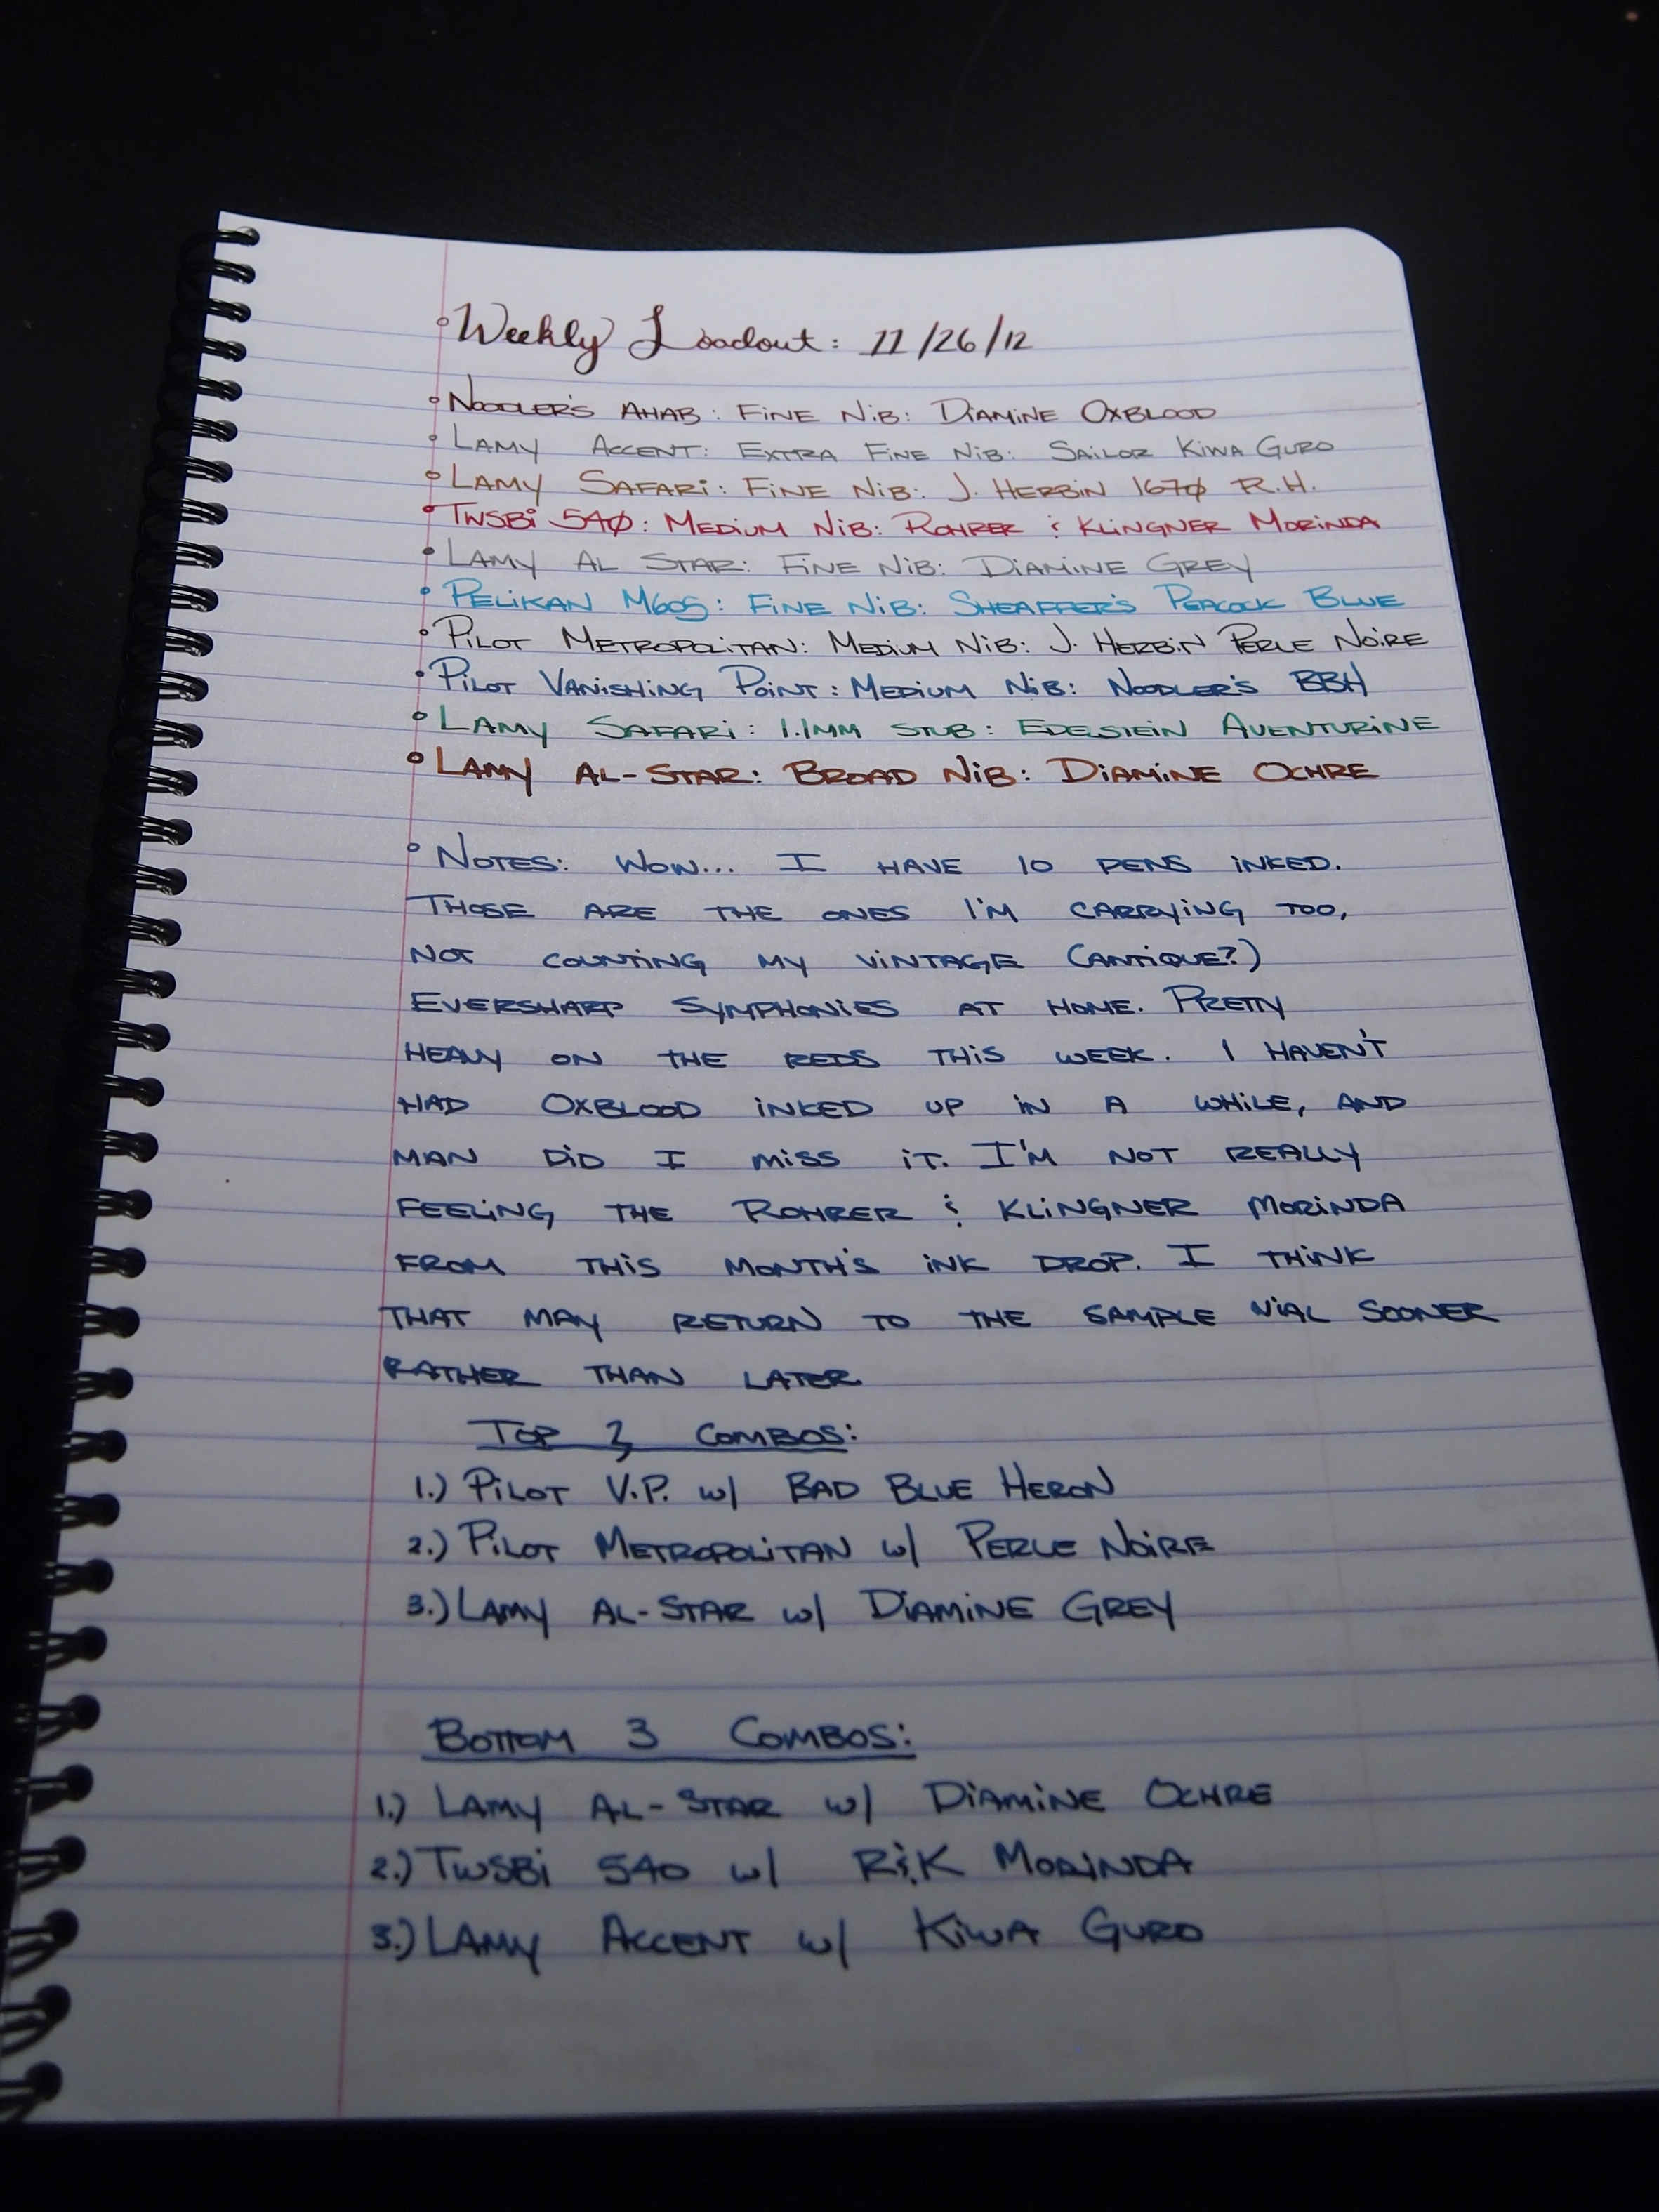 Weekly Loadout: 11/26/12
Noodler's Ahab: Fine Nib: Diamine Oxblood
Lamy Accent: Extra Fine Nib: Sailor Kiwa Guro
Lamy Safari: Fine Nib: J. Herbin 1670 R.H.
TWSBi 540: Medium Nib: Rohrer & Klingner Morinda
Lamy Al Star: Fine Nib: Diamine Grey
Pelikan M605: Fine Nib: Sheaffer's Peacock Blue
Pilot Metropolitan: Medium Nib: J. Herbin Perle Noire
Pilot Vanishing Point: Medium Nib: Noodler's BBH
Lamy Safari: 1.1mm Stub: Edelstein Aventurine
Lamy Al-Star: Broad Nib: Diamine Ochre
Notes: Wow... I have 10 pens inked.
Those are the ones I'm carrying too,
not counting my vintage (antique?)
Eversharp Symphonies at home. Pretty
heavy on the reds this week. I haven't
had Oxblood inked up in a while, and
man did I miss it. I'm not really
feeling the Rohrer & Klingner Morinda
from this month's ink drop. I think
that may return to the sample vial sooner
rather than later
Top 3 Combos:
1.) Pilot V.P. w/ Bad Blue Heron
2.) Pilot Metropolitan w/ Perle Noire
3.) Lamy Al-Star w/ Diamine Grey
Bottom 3 Combos:
1.) Lamy Al-Star w/ Diamine Ochre
2.) TWSBi 540 w/ R&K Morinda
3.) Lamy Accent w/ Kiwa Guro